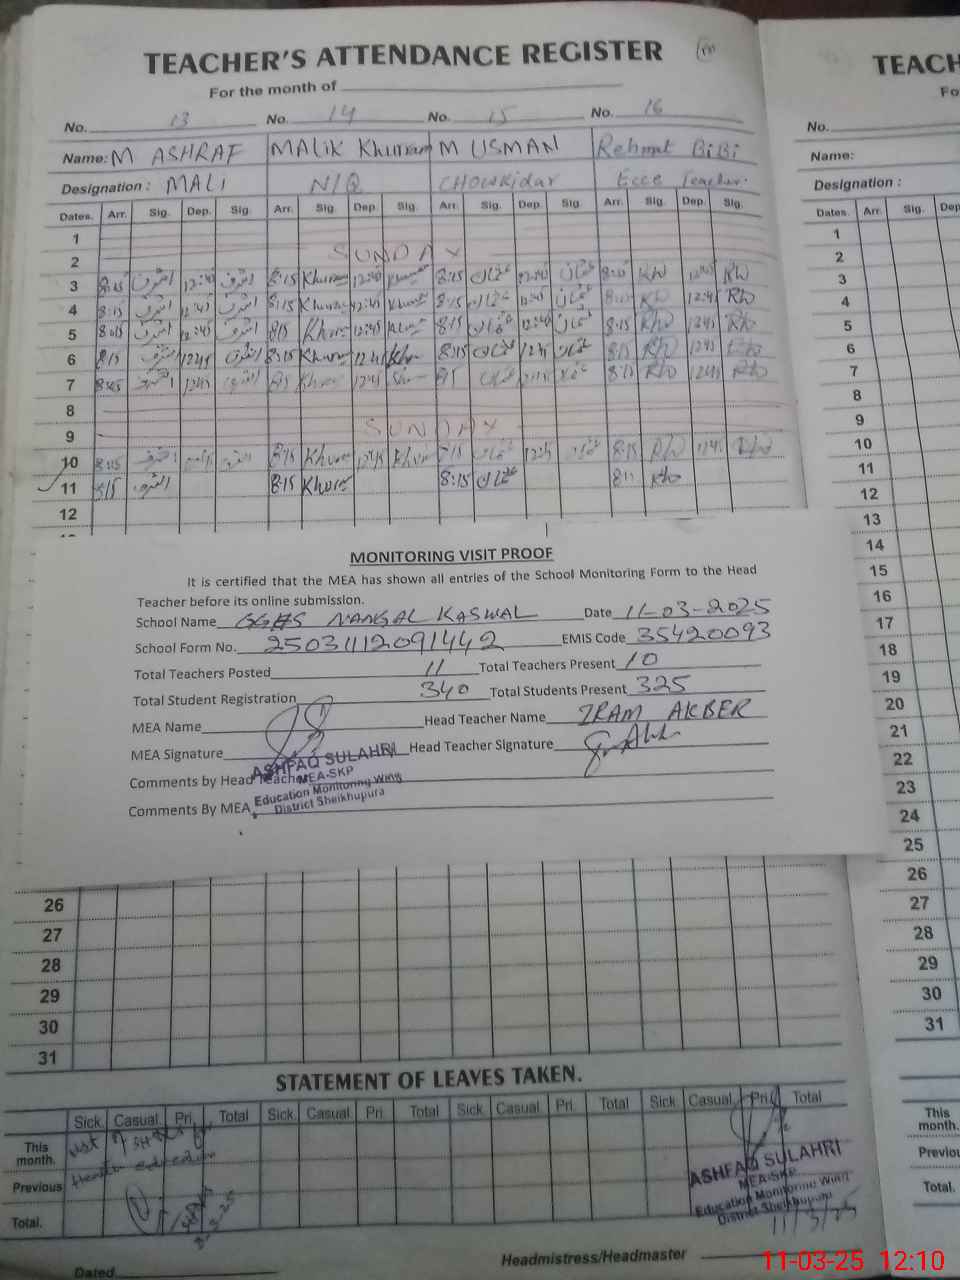 TEACHER'S ATTENDANCE REGISTER
For the month of
No. 13 No. 14 No. 15 No. 16
Name: M ASHRAF MALIK Khurram M USMAN Rehmat BiBi
Designation : MALI N/Q CHOWKidar Ecce Teacher.
Dates. Arr. Sig. Dep. Sig. Arr. Sig. Dep. Sig. Arr. Sig. Dep. Sig. Arr. Sig. Dep. Sig.
1
2 SUNDAY
3 8:15 اشرف 12:45 اشرف 8:15 12:45 8:15 عثمان 12:45 عثمان 8:15 12:45
4 8:15 اشرف 12:45 اشرف 8:15 12:45 8:15 عثمان 12:45 عثمان 8:15 12:45
5 8:15 اشرف 12:45 اشرف 8:15 12:45 8:15 عثمان 12:45 عثمان 8:15 12:45
6 8:15 اشرف 12:45 اشرف 8:15 12:45 8:15 عثمان 12:45 عثمان 8:15 12:45
7 اشرف 12:45 اشرف 12:45 8:15 عثمان عثمان 8:15 12:45
8
9 SUNDAY
10 8:15 اشرف 8:15 12:45 8:15 عثمان 12:45 8:15 12:45
11 8:15 اشرف 8:15 8:15 عثمان
12
MONITORING VISIT PROOF
It is certified that the MEA has shown all entries of the School Monitoring Form to the Head
Teacher before its online submission.
School Name GGHS NANGAL KASWAL Date 11-03-2025
School Form No. 25031112091442 EMIS Code 35420093
Total Teachers Posted 11 Total Teachers Present 10
Total Student Registration 340 Total Students Present 325
MEA Name Head Teacher Name IRAM AKBER
MEA Signature Head Teacher Signature
ASHFAQ SULAHRI
Comments by Head Teacher
MEA-SKP
Comments By MEA
Education Monitoring Wing
District Sheikhupura
26
27
28
29
30
31
STATEMENT OF LEAVES TAKEN.
Sick. Casual. Pri. Total Sick. Casual. Pri. Total Sick. Casual. Pri. Total Sick. Casual. Pri. Total
This month.
Previous
Total.
ASHFAQ SULAHRI
MEA-SKP
Education Monitoring Wing
District Sheikhupura
11/3/25
Dated. Headmistress/Headmaster
TEACH
Fo
No.
Name:
Designation :
Dates. Arr. Sig. Dep
1
2
3
4
5
6
7
8
9
10
11
12
13
14
15
16
17
18
19
20
21
22
23
24
25
26
27
28
29
30
31
This month.
Previou
Total.
11-03-25 12:10